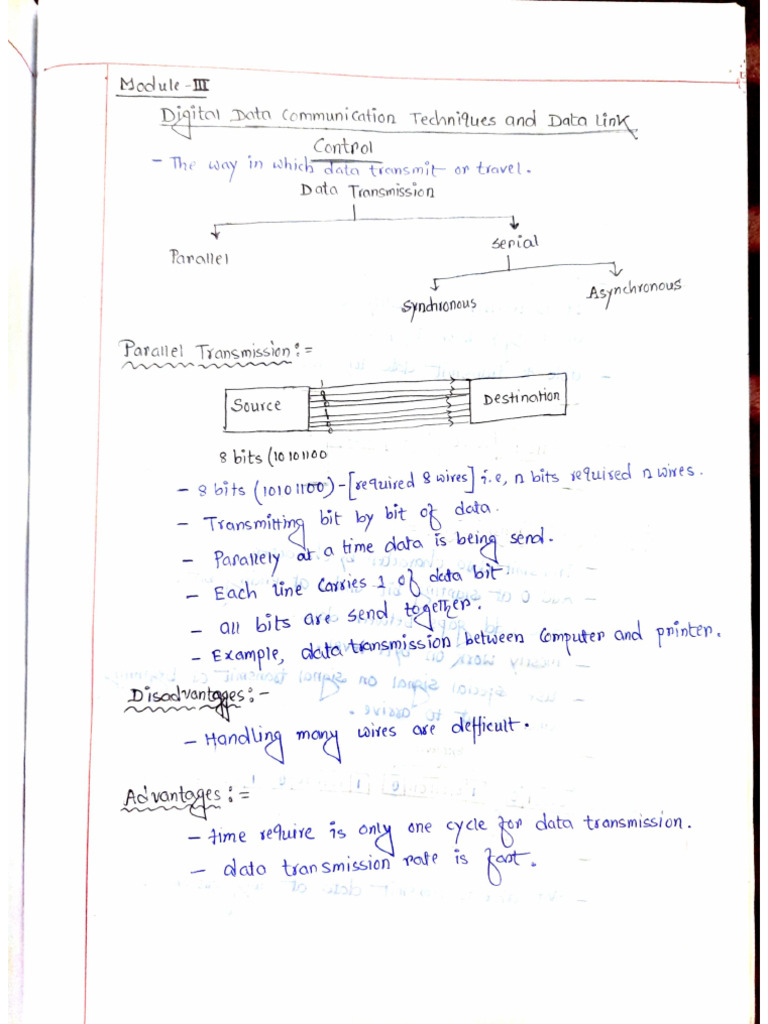 Module-III
Digital Data Communication Techniques and Data Link
Control
- The way in which data transmit or travel.
Data Transmission
Parallel
Serial
Synchronous
Asynchronous
Parallel Transmission:=
Source
Destination
8 bits (10101100
- 8 bits (10101100)-[required 8 wires] i.e, n bits required n wires.
- Transmitting bit by bit of data.
- Parallely at a time data is being send.
- Each line carries 1 of data bit
- all bits are send together.
- Example, data transmission between computer and printer.
Disadvantages:-
- Handling many wires are defficult.
Advantages:=
- time require is only one cycle for data transmission.
- data transmission rate is fast.